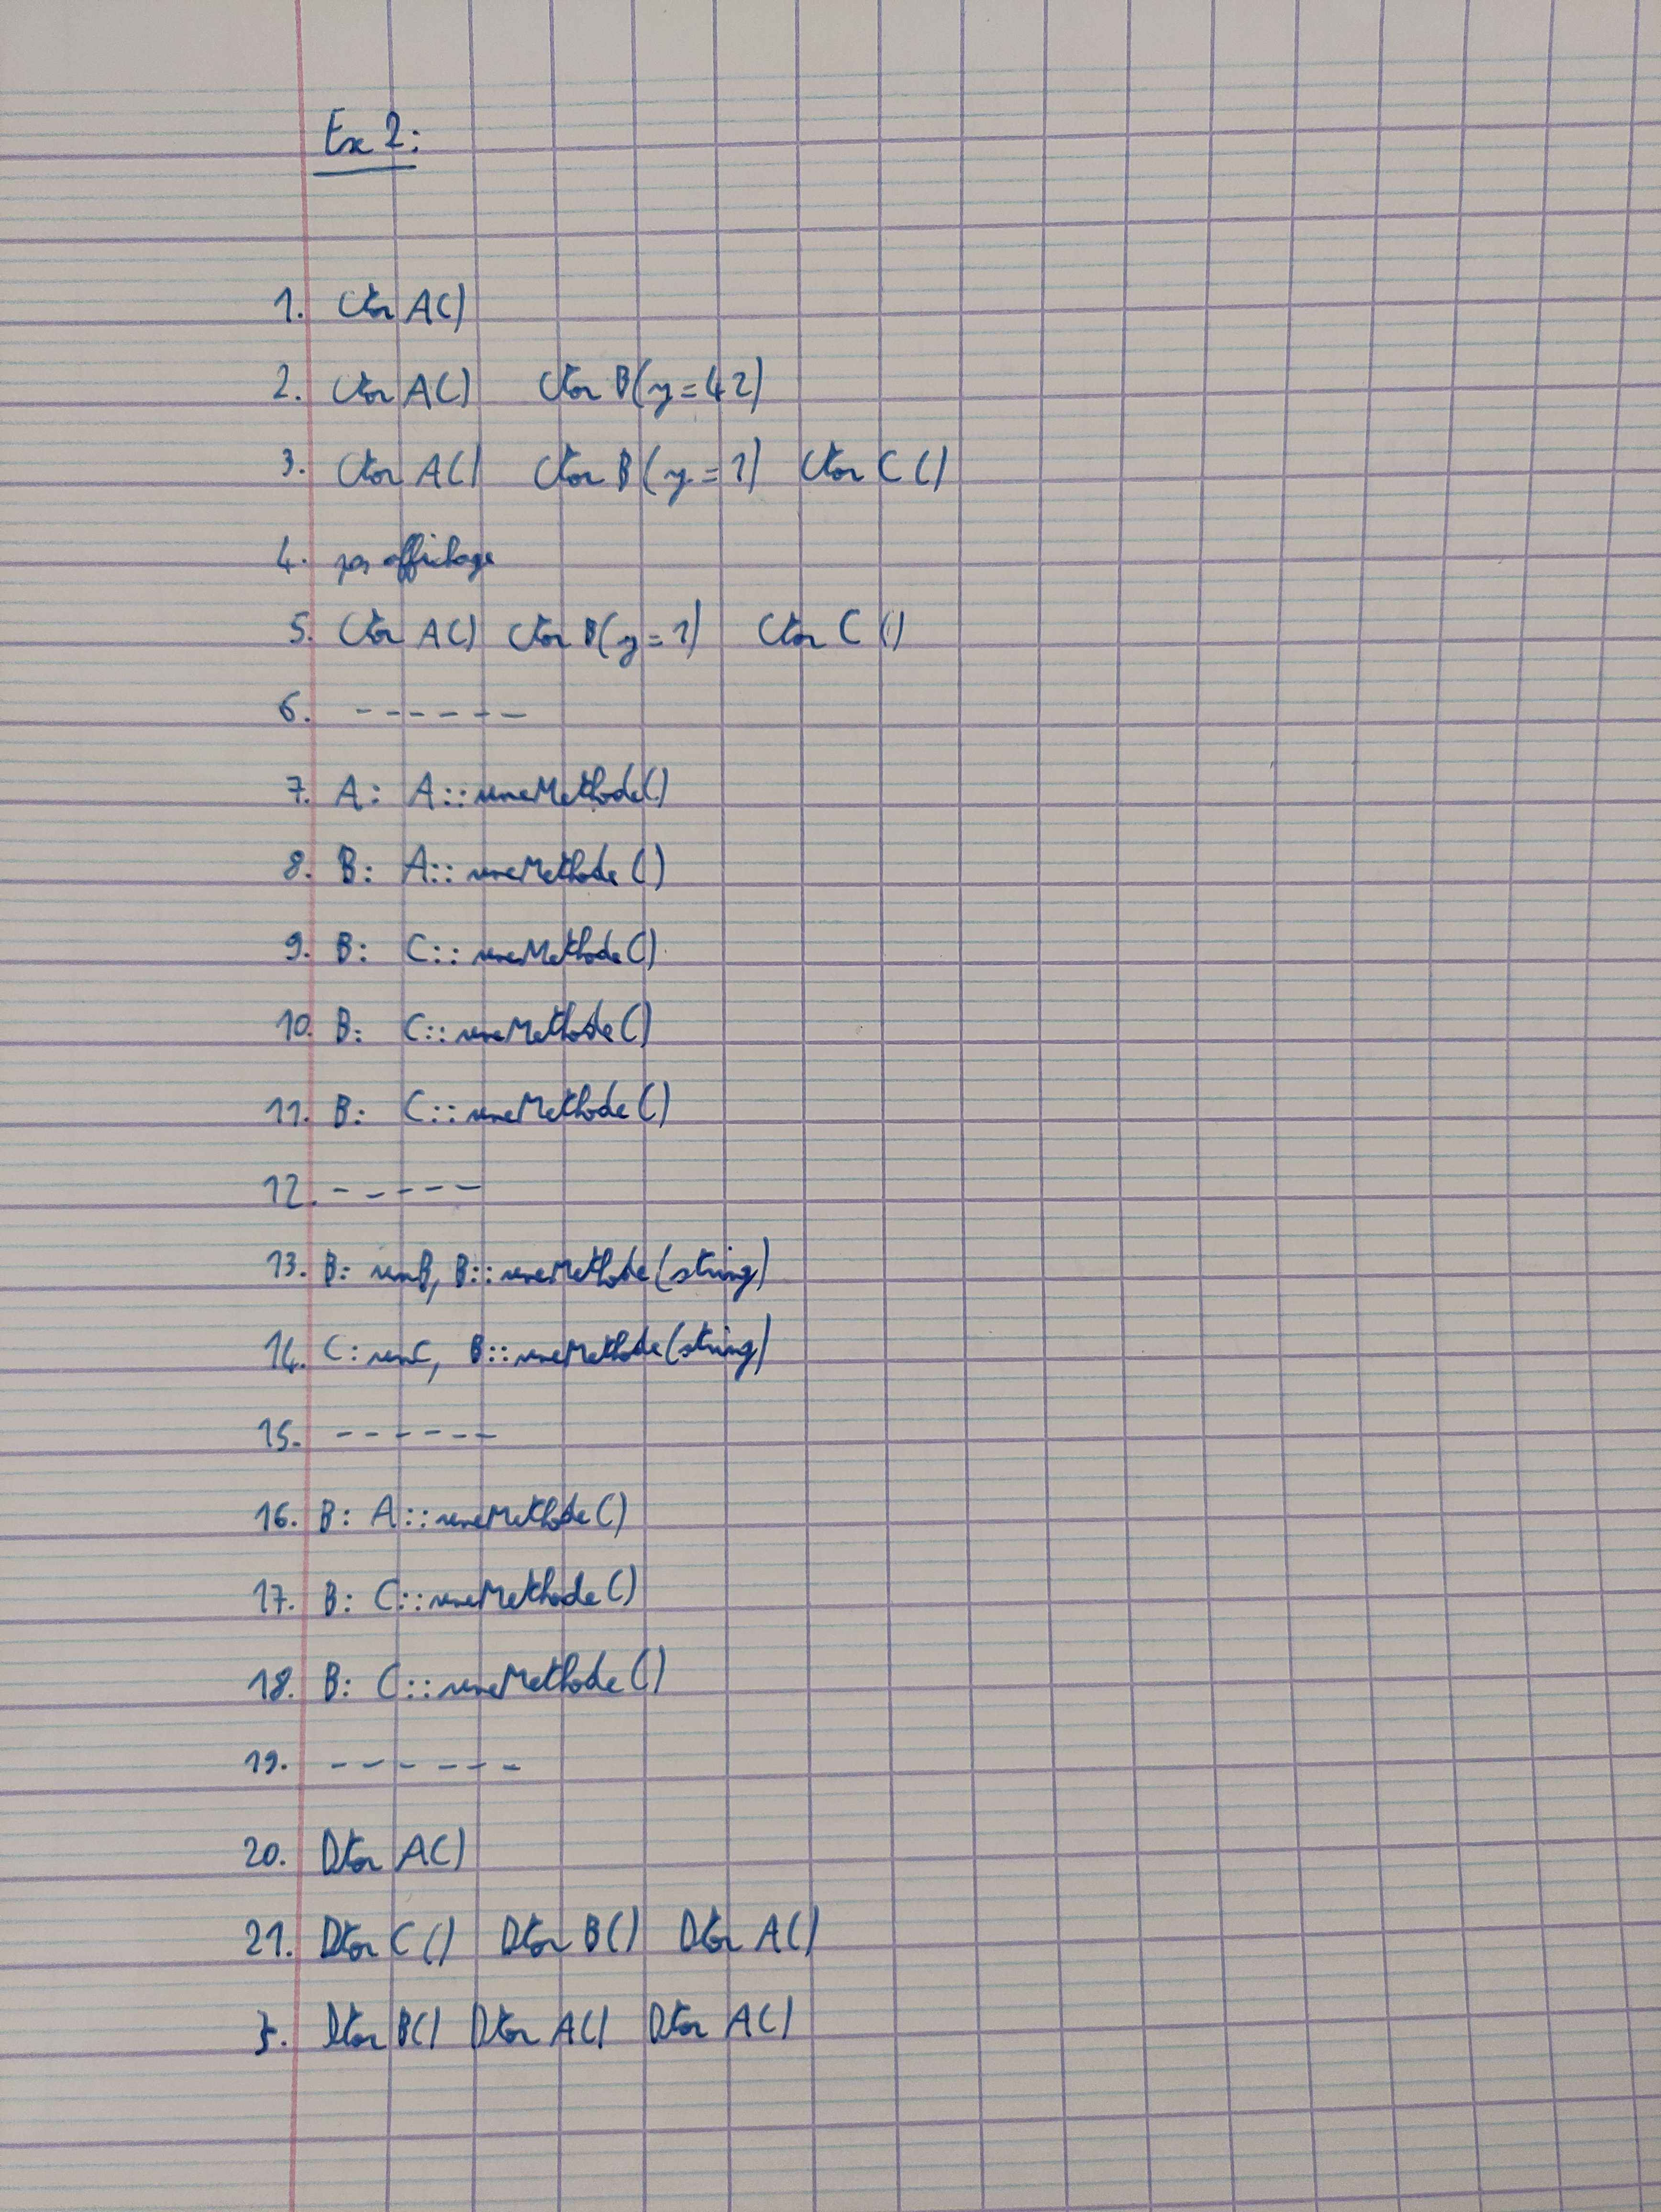 Ex 2:
1. Ctor A()
2. Ctor A() Ctor B(y=42)
3. Ctor A() Ctor B(y=1) Ctor C()
4. pas affichage
5. Ctor A() Ctor B(y=1) Ctor C()
6. ------
7. A: A::uneMethode()
8. B: A::uneMethode()
9. B: C::uneMethode()
10. B: C::uneMethode()
11. B: C::uneMethode()
12. -----
13. B: unB, B::uneMethode(string)
14. C: unC, B::uneMethode(string)
15. ------
16. B: A::uneMethode()
17. B: C::uneMethode()
18. B: C::uneMethode()
19. ------
20. Dtor A()
21. Dtor C() Dtor B() Dtor A()
}. Dtor B() Dtor A() Dtor A()